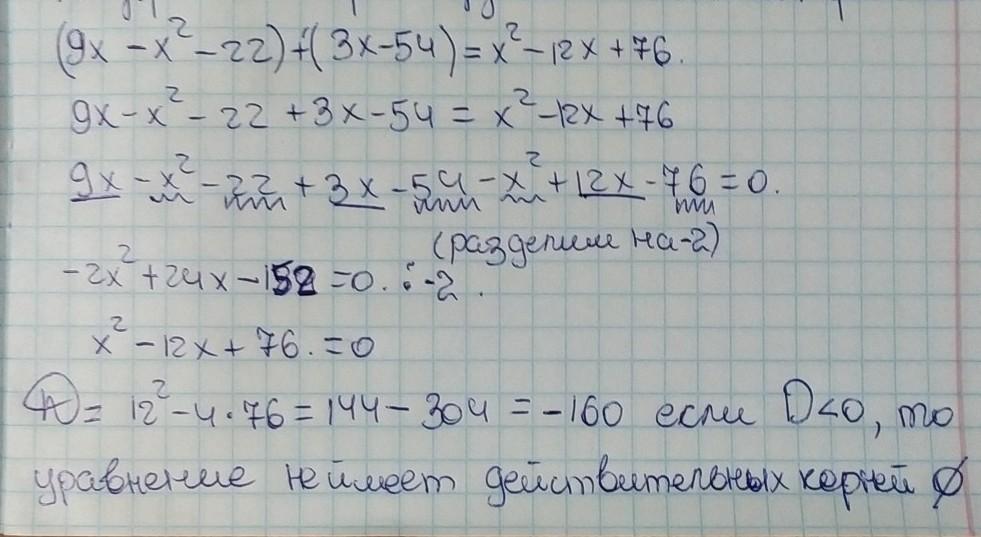 (9x - x² - 22) + (3x - 54) = x² - 12x + 76.
9x - x² - 22 + 3x - 54 = x² - 12x + 76
9x - x² - 22 + 3x - 54 - x² + 12x - 76 = 0.
(разделим на -2)
-2x² + 24x - 152 = 0. : -2.
x² - 12x + 76. = 0
D = 12² - 4·76 = 144 - 304 = -160 если D<0, то
уравнение не имеет действительных корней ∅